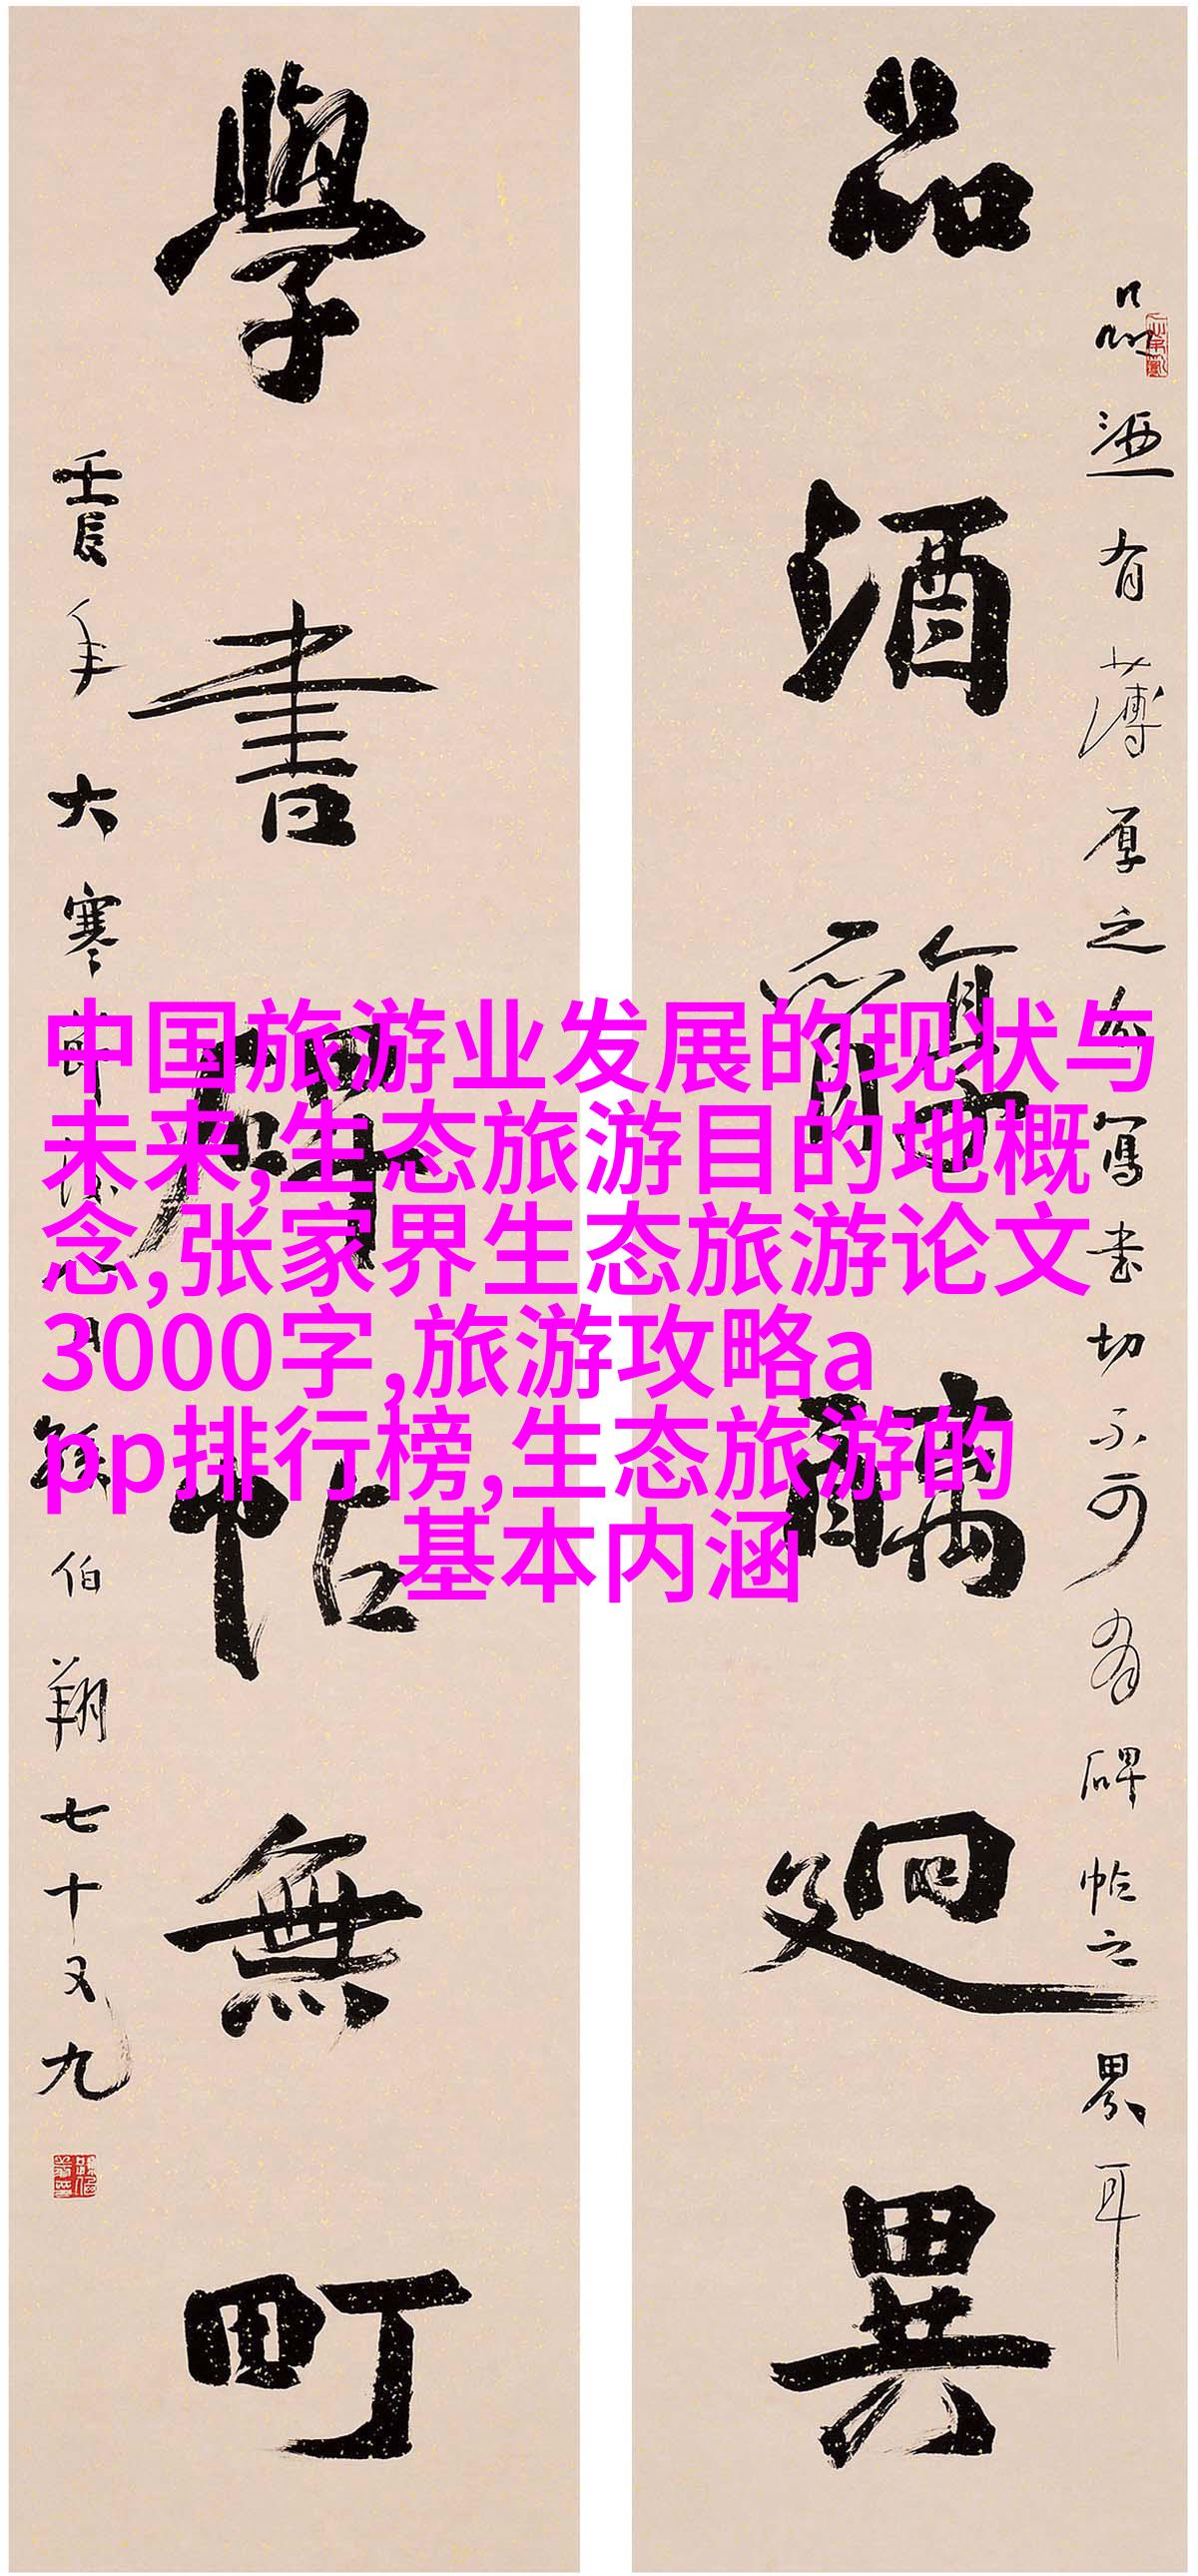 品酒醇醨迥異
品酒有薄厚之
寫書切不可有碑帖之界耳
學書碑帖無町
壬辰年大寒
伯翔七十又九
中国旅游业发展的现状与
未来,生态旅游目的地概
念,张家界生态旅游论文
3000字,旅游攻略a
pp排行榜,生态旅游的
基本内涵